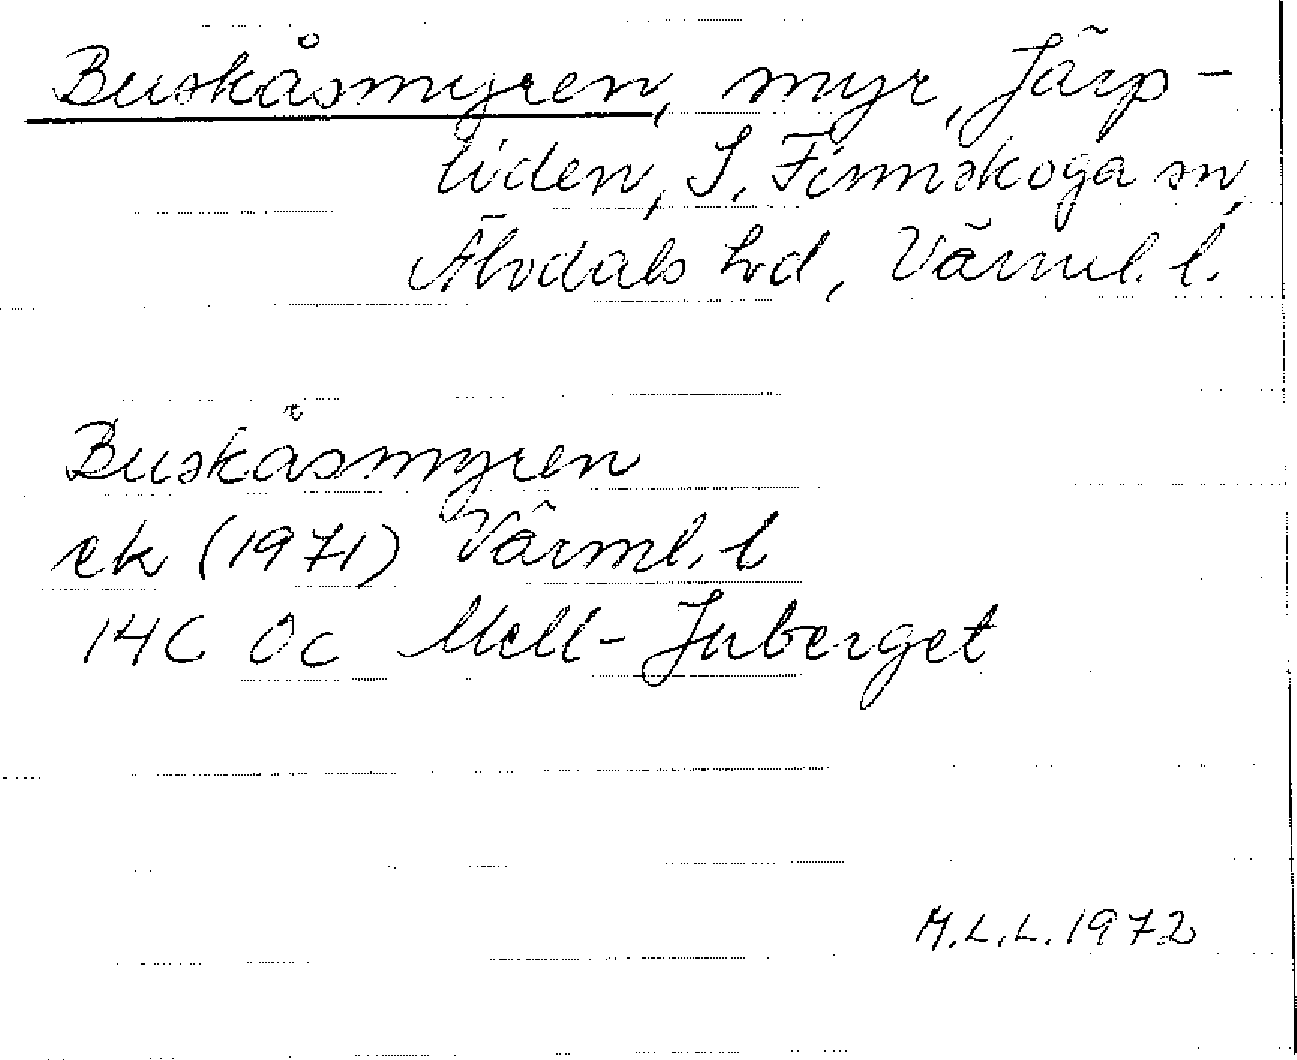 Buskåsmyren, myr, Järp-
liden, S. Finnskoga sn,
Älvdals hd, Värml. l.
Buskåsmyren
ek (1971) Värml. l
14C 0c Mell-Juberget
M.L.L. 1972